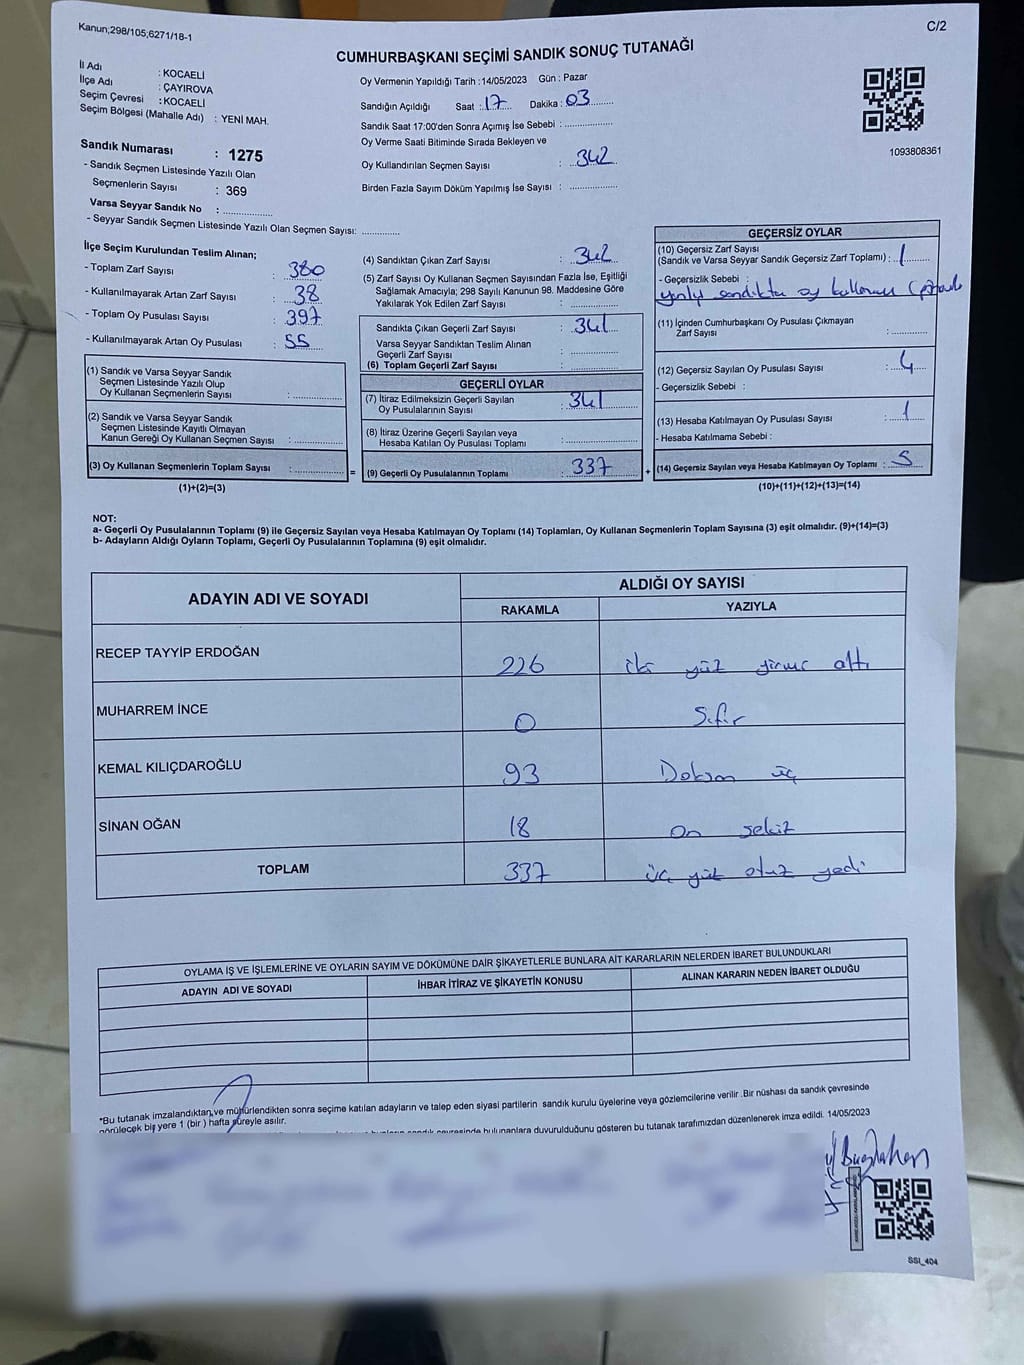 Kanun;298/105;6271/18-1
C/2
CUMHURBAŞKANI SEÇİMİ SANDIK SONUÇ TUTANAĞI
İl Adı : KOCAELİ
İlçe Adı : ÇAYIROVA
Seçim Çevresi : KOCAELİ
Seçim Bölgesi (Mahalle Adı) : YENİ MAH.
Sandık Numarası : 1275
- Sandık Seçmen Listesinde Yazılı Olan
Seçmenlerin Sayısı : 369
Varsa Seyyar Sandık No : ..................
- Seyyar Sandık Seçmen Listesinde Yazılı Olan Seçmen Sayısı: ..............
Oy Vermenin Yapıldığı Tarih : 14/05/2023 Gün : Pazar
Sandığın Açıldığı Saat : 17 Dakika : 03
Sandık Saat 17:00'den Sonra Açımış İse Sebebi : ..................
Oy Verme Saati Bitiminde Sırada Bekleyen ve
Oy Kullandırılan Seçmen Sayısı : 342
Birden Fazla Sayım Döküm Yapılmış İse Sayısı : .................
1093808361
İlçe Seçim Kurulundan Teslim Alınan;
- Toplam Zarf Sayısı : 380
- Kullanılmayarak Artan Zarf Sayısı : 38
- Toplam Oy Pusulası Sayısı : 397
- Kullanılmayarak Artan Oy Pusulası : 55
(1) Sandık ve Varsa Seyyar Sandık
Seçmen Listesinde Yazılı Olup
Oy Kullanan Seçmenlerin Sayısı : ..................
(2) Sandık ve Varsa Seyyar Sandık
Seçmen Listesinde Kayıtlı Olmayan
Kanun Gereği Oy Kullanan Seçmen Sayısı : ..................
(3) Oy Kullanan Seçmenlerin Toplam Sayısı : ..................
(1)+(2)=(3)
(4) Sandıktan Çıkan Zarf Sayısı : 342
(5) Zarf Sayısı Oy Kullanan Seçmen Sayısından Fazla İse, Eşitliği
Sağlamak Amacıyla; 298 Sayılı Kanunun 98. Maddesine Göre
Yakılarak Yok Edilen Zarf Sayısı : ..................
Sandıkta Çıkan Geçerli Zarf Sayısı : 341
Varsa Seyyar Sandıktan Teslim Alınan
Geçerli Zarf Sayısı : ..................
(6) Toplam Geçerli Zarf Sayısı : ..................
GEÇERLİ OYLAR
(7) İtiraz Edilmeksizin Geçerli Sayılan
Oy Pusulalarının Sayısı : 341
(8) İtiraz Üzerine Geçerli Sayılan veya
Hesaba Katılan Oy Pusulası Toplamı : ..................
= (9) Geçerli Oy Pusulalarının Toplamı : 337
GEÇERSİZ OYLAR
(10) Geçersiz Zarf Sayısı
(Sandık ve Varsa Seyyar Sandık Geçersiz Zarf Toplamı) : 1
- Geçersizlik Sebebi :
sandıkta oy kullanma
(11) İçinden Cumhurbaşkanı Oy Pusulası Çıkmayan
Zarf Sayısı : ..............
(12) Geçersiz Sayılan Oy Pusulası Sayısı : 4
- Geçersizlik Sebebi :
(13) Hesaba Katılmayan Oy Pusulası Sayısı : 1
- Hesaba Katılmama Sebebi :
+ (14) Geçersiz Sayılan veya Hesaba Katılmayan Oy Toplamı : 5
(10)+(11)+(12)+(13)=(14)
NOT:
a- Geçerli Oy Pusulalarının Toplamı (9) ile Geçersiz Sayılan veya Hesaba Katılmayan Oy Toplamı (14) Toplamları, Oy Kullanan Seçmenlerin Toplam Sayısına (3) eşit olmalıdır. (9)+(14)=(3)
b- Adayların Aldığı Oyların Toplamı, Geçerli Oy Pusulalarının Toplamına (9) eşit olmalıdır.
ADAYIN ADI VE SOYADI
ALDIĞI OY SAYISI
RAKAMLA YAZIYLA
RECEP TAYYİP ERDOĞAN 226 iki yüz yirmi altı
MUHARREM İNCE 0 Sıfır
KEMAL KILIÇDAROĞLU 93 Doksan üç
SİNAN OĞAN 18 on sekiz
TOPLAM 337 üç yüz otuz yedi
OYLAMA İŞ VE İŞLEMLERİNE VE OYLARIN SAYIM VE DÖKÜMÜNE DAİR ŞİKAYETLERLE BUNLARA AİT KARARLARIN NELERDEN İBARET BULUNDUKLARI
ADAYIN ADI VE SOYADI İHBAR İTİRAZ VE ŞİKAYETİN KONUSU ALINAN KARARIN NEDEN İBARET OLDUĞU
*Bu tutanak imzalandıktan ve mühürlendikten sonra seçime katılan adayların ve talep eden siyasi partilerin sandık kurulu üyelerine veya gözlemcilerine verilir. Bir nüshası da sandık çevresinde
görülecek bir yere 1 (bir ) hafta süreyle asılır.
bulunanlara duyurulduğunu gösteren bu tutanak tarafımızdan düzenlenerek imza edildi. 14/05/2023
SSI_404